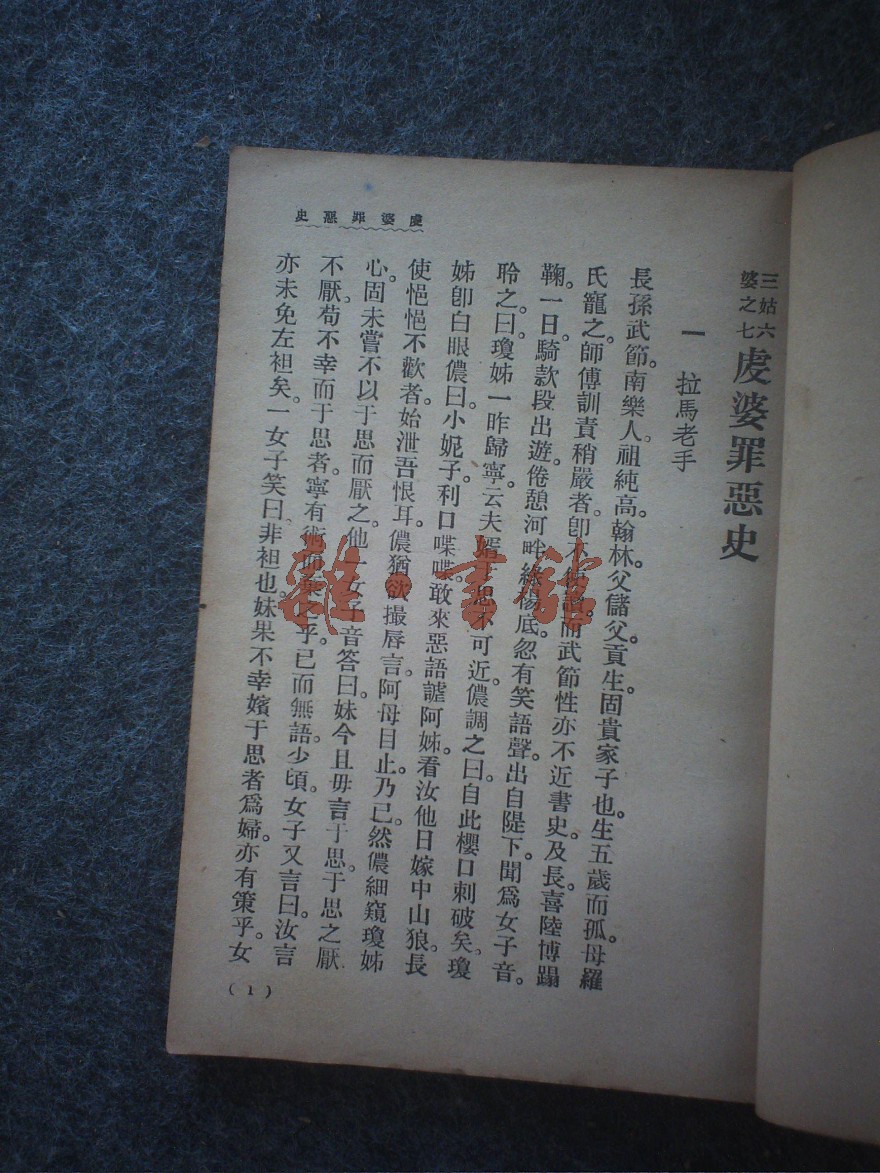 虔婆罪惡史
三姑六婆之七
虔婆罪惡史
一 拉馬老手
長孫武節。南樂人。祖純高。翰林。父儲父。貢生。固貴家子也。生五歲而孤。母羅
氏寵之。師傅訓責稍嚴者。卽不而武節性亦不近書史。及長。喜陸博蹋
鞠。一日騎款段出遊。倦憩河畔綠楊底。忽有笑語聲。出自隄下。聞爲女子音。
聆之曰。瓊姊一昨歸寧。云夫婿于思不可近。儂調之曰。自此櫻口刺破矣。瓊
姊卽白眼儂曰。小妮子利口喋喋。敢來惡語謔阿姊。看汝他日嫁中山狼。長
使悒悒不歡者。始泄吾恨耳。儂猶欲撮唇言。阿母目止。乃已。然儂細窺瓊姊
心。固未嘗不以于思而厭之。他一女子音答曰。妹今且毋言于思。于思之厭
不厭。苟不幸而于思者。寧有術而之乎。已而無語。少頃。女子又言曰。汝言
亦未免左袒矣。一女子笑曰。非袒也。妹果不幸嬪于思者爲婦。亦有策乎。女
(1)
雜·書館